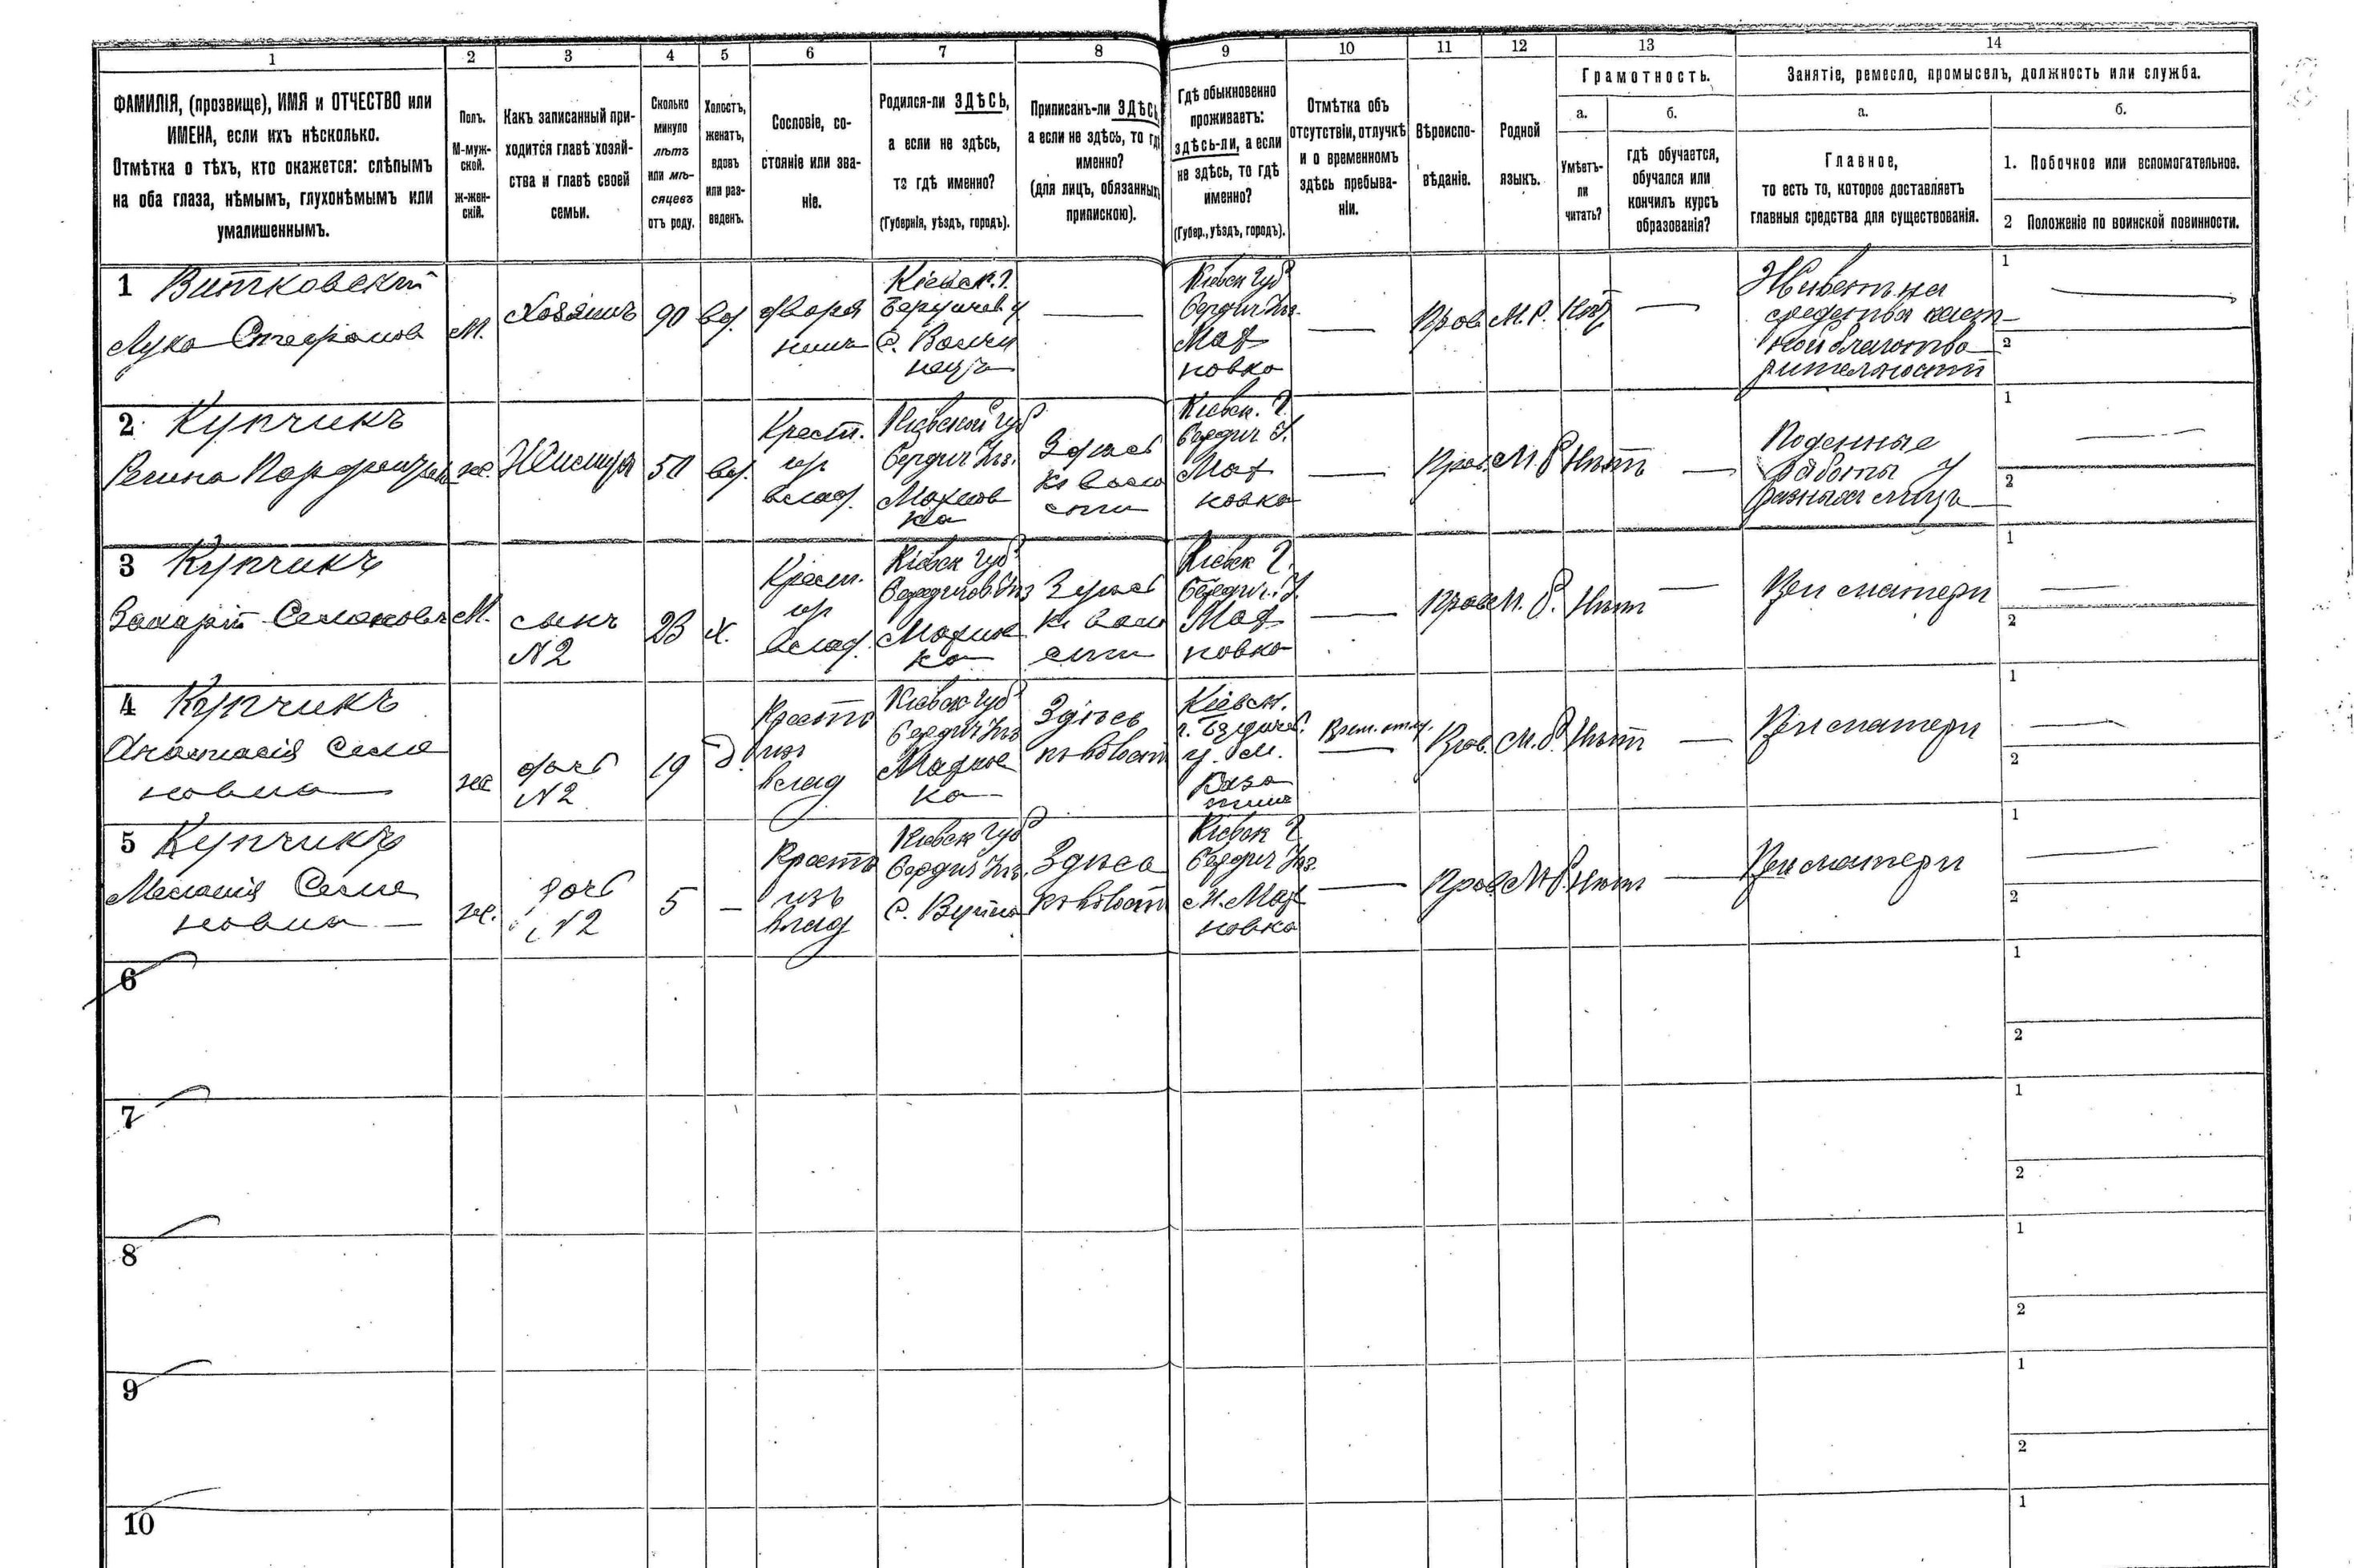 1 2 3 4 5 6 7 8 9 10 11 12 13 14
ФАМИЛІЯ, (прозвище), ИМЯ и ОТЧЕСТВО или
ИМЕНА, если ихъ нѣсколько.
Отмѣтка о тѣхъ, кто окажется: слѣпымъ
на оба глаза, нѣмымъ, глухонѣмымъ или
умалишеннымъ.
Полъ.
М-муж-
ской.
ж-жен-
скій.
Какъ записанный при-
ходится главѣ хозяй-
ства и главѣ своей
семьи.
Сколько
минуло
лѣтъ
или мѣ-
сяцевъ
отъ роду.
Холостъ,
женатъ,
вдовъ
или раз-
веденъ.
Сословіе, со-
стояніе или зва-
ніе.
Родился-ли ЗДѢСЬ,
а если не здѣсь,
то гдѣ именно?
(Губернія, уѣздъ, городъ).
Приписанъ-ли ЗДѢСЬ,
а если не здѣсь, то гдѣ
именно?
(для лицъ, обязанныхъ
припискою).
Гдѣ обыкновенно
проживаетъ:
здѣсь-ли, а если
не здѣсь, то гдѣ
именно?
(Губер., уѣздъ, городъ).
Отмѣтка объ
отсутствіи, отлучкѣ
и о временномъ
здѣсь пребыва-
ніи.
Вѣроиспо-
вѣданіе.
Родной
языкъ.
Грамотность.
а.
Умѣетъ-
ли
читать?
б.
гдѣ обучается,
обучался или
кончилъ курсъ
образованія?
Занятіе, ремесло, промыселъ, должность или служба.
а.
Главное,
то есть то, которое доставляетъ
главныя средства для существованія.
б.
1. Побочное или вспомогательное.
2 Положеніе по воинской повинности.
1 Витковскій
Лука Стефанов
М.
Хозяинъ
90
вд.
дворя
нинъ
Кіевск. г.
Бердичев. у
С.
—
Кіевск губ
Бердич. Уѣз.
Мах
новка
—
Прав
М. Р.
—
Живетъ на
средства част
ной благотво
рительности
1
2
2 Купчикъ
ж.
50
вд.
Крест.
из
влад.
Кіевской губ
Бердич Уѣз.
Махнов
ка
Здѣсь
къ воло
сти
Кіевск. г.
Бердич У.
Мах
новка
—
Прав.
М. Р
Нѣтъ
—
Поденные
работы у
разныхъ лицъ
1
2
3 Купчикъ
Захарій Семеновъ
М.
сынъ
N 2
23
х.
Крест.
из
влад.
Кіевск губ
Бердичов. Уѣз
Махнов
ка
Здѣсь
къ воло
сти
Кіевск г.
Бердич. У.
Мах
новка
—
Прав
М. Р.
Нѣт
—
При матери
1
2
4 Купчикъ
Анастасія Семе
новна
ж
дочь
N 2
19
д.
Крестъ
изъ
влад
Кіевск губ
Бердич Уѣз
Махнов
ка
Здѣсь
къ волост
Кіевск.
г. Бердичев.
у. м.
Врем. отлуч.
Прав.
М. Р.
Нѣт
—
При матери
1
2
5 Купчикъ
Меланія Семе
новна
ж.
дочь
N 2
5
—
Крестъ
изъ
влад
Кіевск губ
Бердич Уѣз.
Здѣсь
къ волост
Кіевск г
Бердич Уѣз.
М. Мах
новка
—
Прав.
М. Р.
нѣт
—
При матери
1
2
6
1
2
7
1
2
8
1
2
9
1
2
10
1